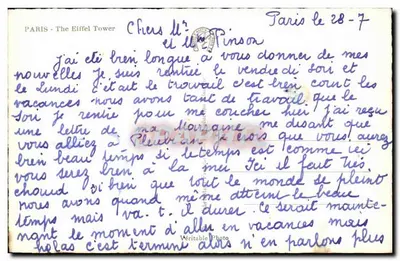 PARIS - The Eiffel Tower
Paris le 28-7
Chers Mr
et Mme Pinson
j'ai été bien longue à vous donner de mes
nouvelles je suis rentrée le vendredi soir et
le lundi c'était le travail c'est bien court les
vacances nous avons tant de travail que le
soir je rentre pour me coucher hier j'ai reçu
une lettre de ma Marraine me disant que
vous alliez à je crois que vous aurez
bien beau temps si le temps est comme ici
vous serez bien à la mer Ici il fait très
chaud si bien que tout le monde se plaint
nous avons quand même atteint le beau
temps mais va-t-il durer ce serait mainte-
nant le moment d'aller en vacances mais
hélas c'est terminé alors n'en parlons plus
Véritable Photo